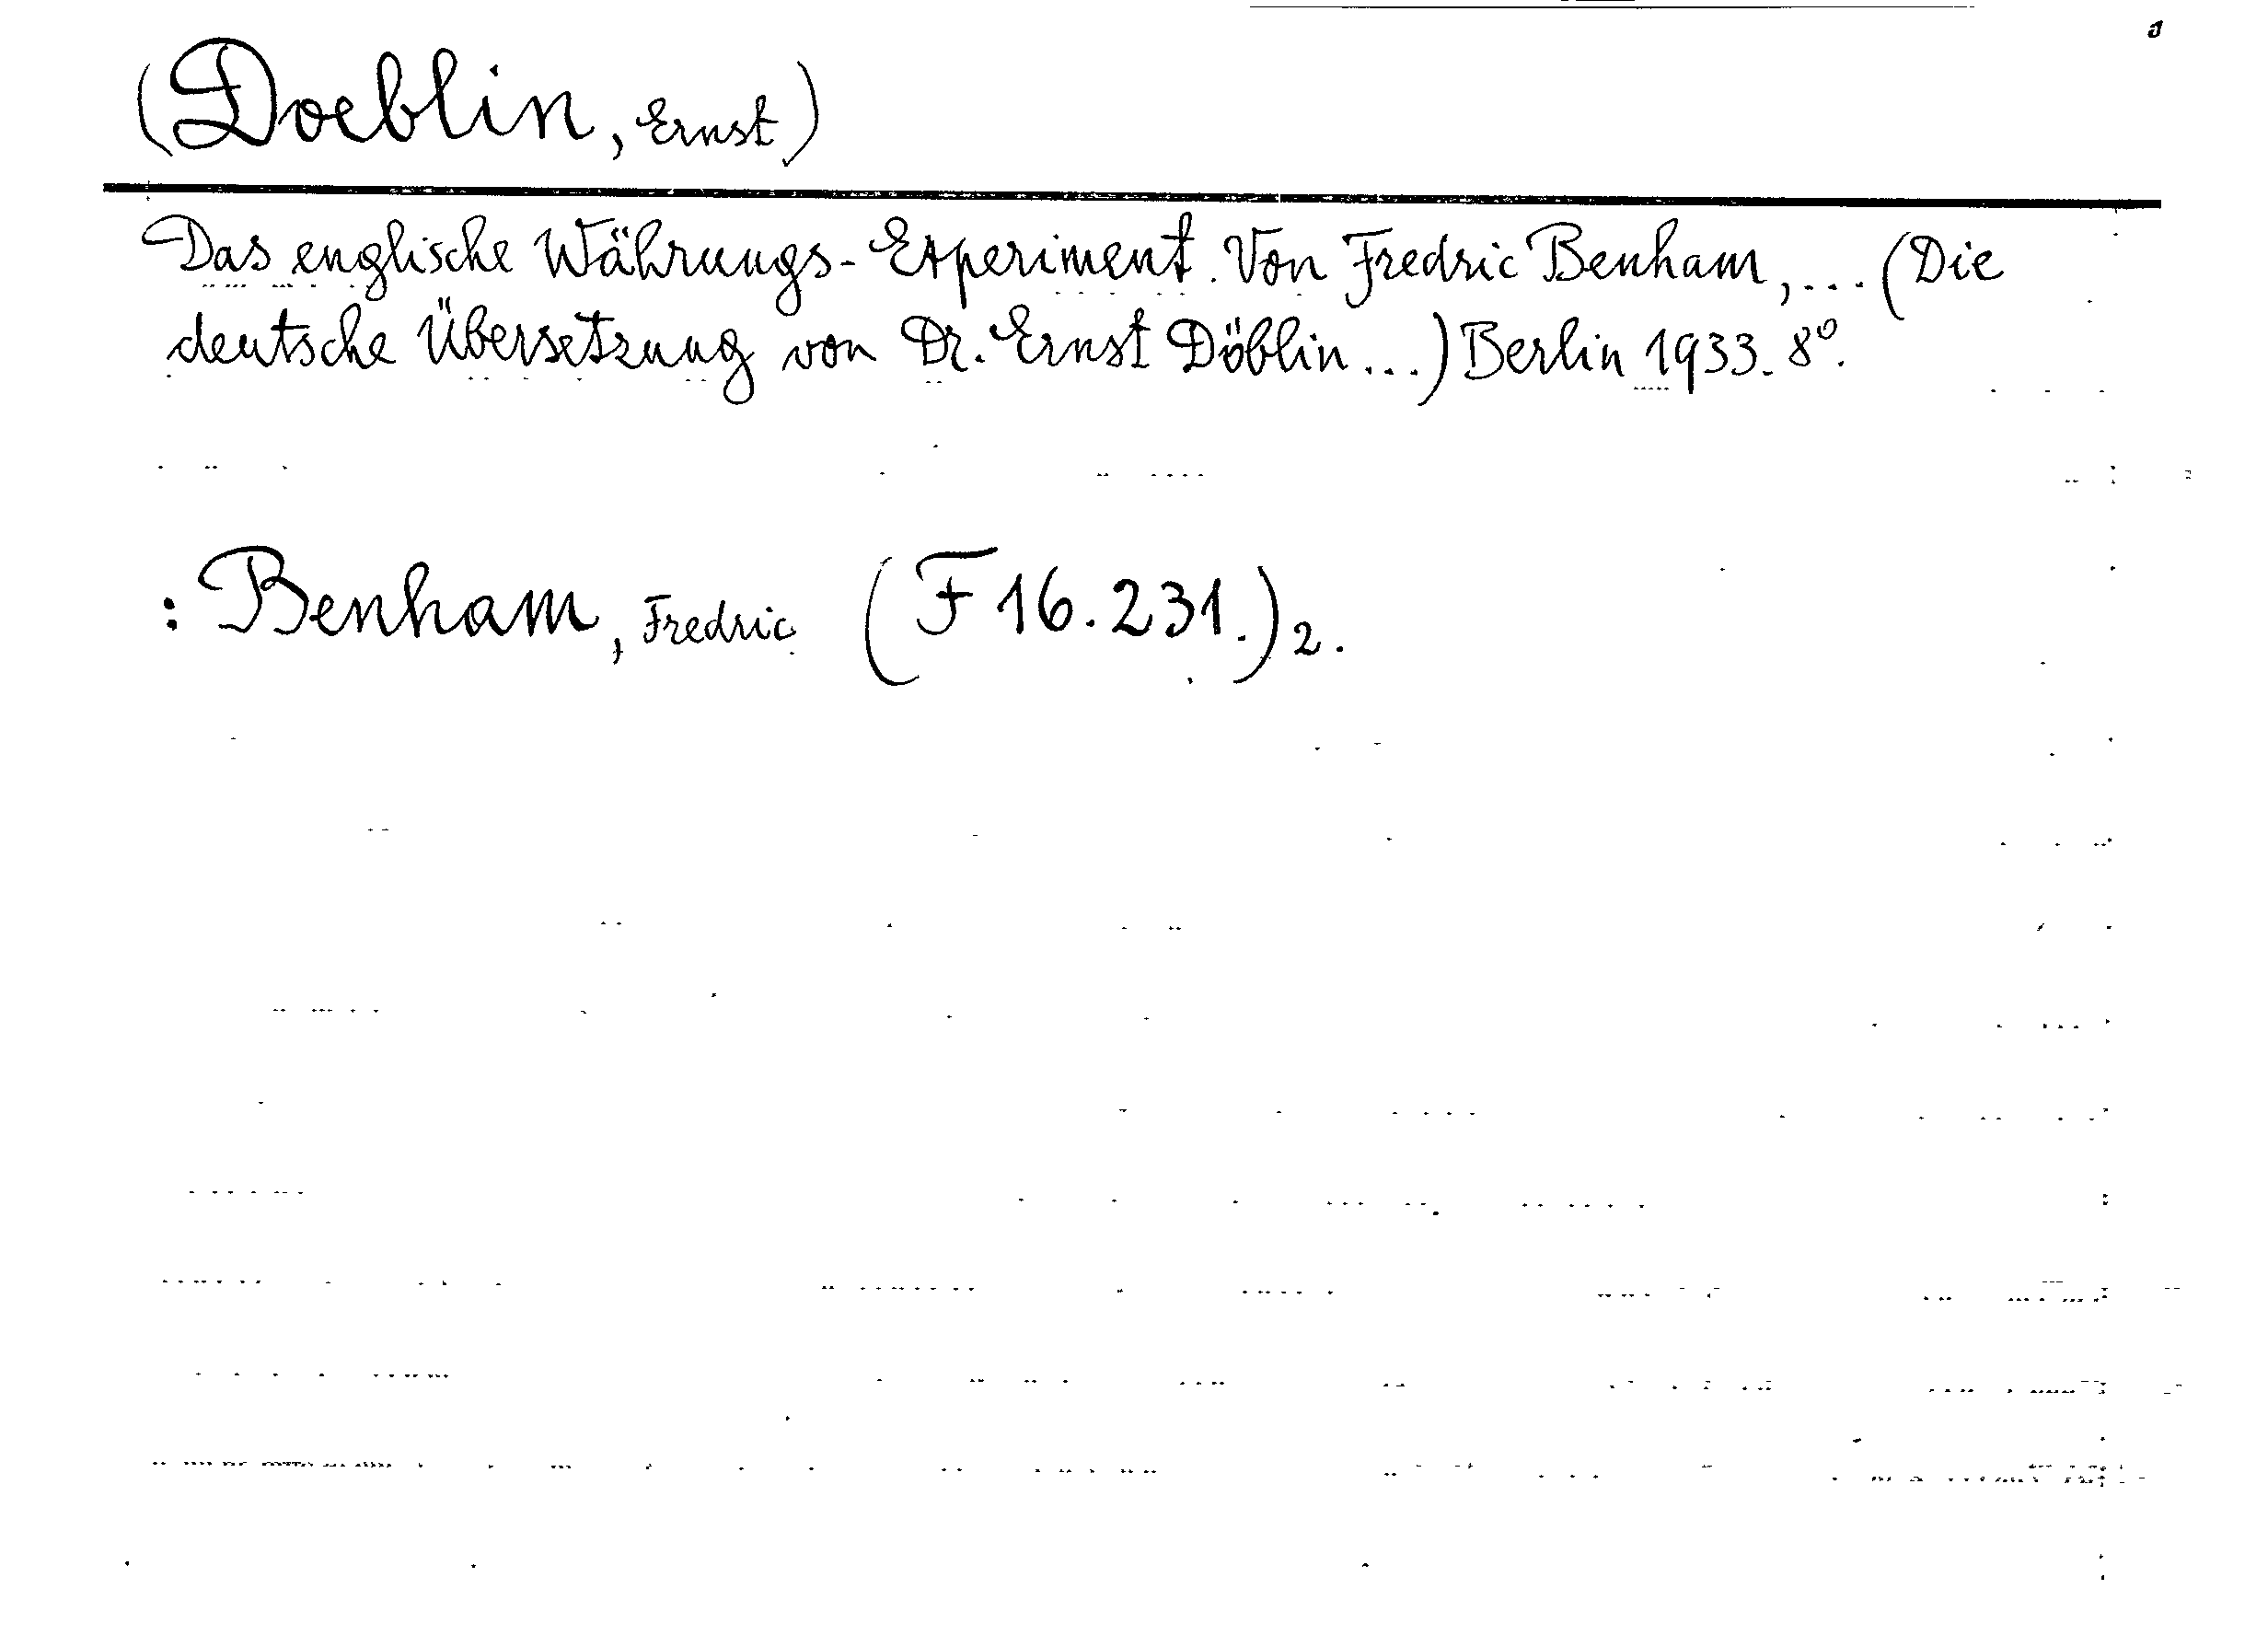 (Doeblin, Ernst)
Das englische Währungs-Experiment. Von Fredric Benham, ... (Die
deutsche Übersetzung von Dr. Ernst Döblin ...) Berlin 1933. 8º.
: Benham, Fredric (F 16.231.)2.